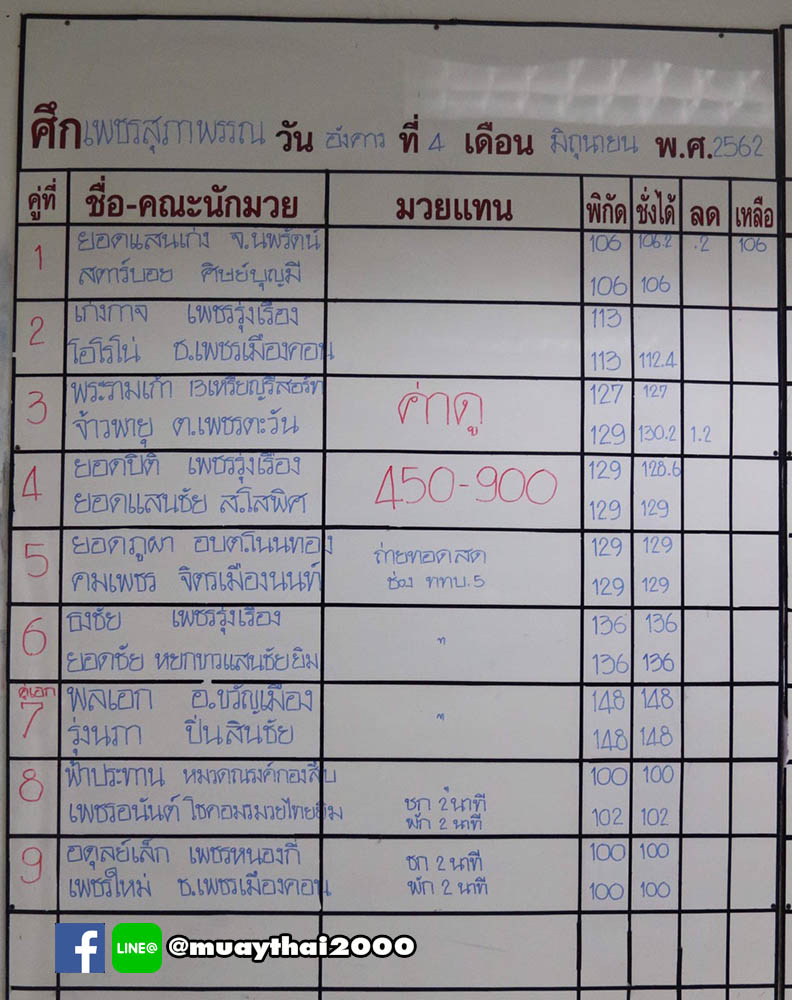 ศึกเพชรสุภาพรรณ วัน อังคาร ที่ 4 เดือน มิถุนายน พ.ศ.2562
คู่ที่ ชื่อ-คณะนักมวย มวยแทน พิกัด ชั่งได้ ลด เหลือ
1 ยอดแสนเก่ง จ.นพรัตน์ 106 106.2 .2 106
สตาร์บอย ศิษย์บุญมี 106 106
2 เก่งกาจ เพชรรุ่งเรือง 113
โอโรโน่ ช.เพชรเมืองคอน 113 112.4
3 พระรามเก้า 13เหรียญรีสอร์ท 127 127
จ้าวพายุ ต.เพชรตะวัน ค่าดู 129 130.2 1.2
4 ยอดปิติ เพชรรุ่งเรือง 450-900 129 128.6
ยอดแสนชัย ส.โสพิศ 129 129
5 ยอดภูผา อบต.โนนทอง ถ่ายทอดสด 129 129
คมเพชร จิตรเมืองนนท์ ช่อง ททบ.5 129 129
6 ธงชัย เพชรรุ่งเรือง 136 136
ยอดชัย หยกขาวแสนชัยยิม " 136 136
คู่เอก
7 พลเอก อ.ขวัญเมือง " 148 148
รุ่งนภา ปิ่นสินชัย 148 148
8 ฟ้าประทาน หมวดณรงค์กองสืบ 100 100
เพชรอนันต์ โชคอมรมวยไทยยิม ชก 2 นาที 102 102
พัก 2 นาที
9 อดุลย์เล็ก เพชรหนองกี่ ชก 2 นาที 100 100
เพชรใหม่ ช.เพชรเมืองคอน พัก 2 นาที 100 100
f LINE@ @muaythai2000